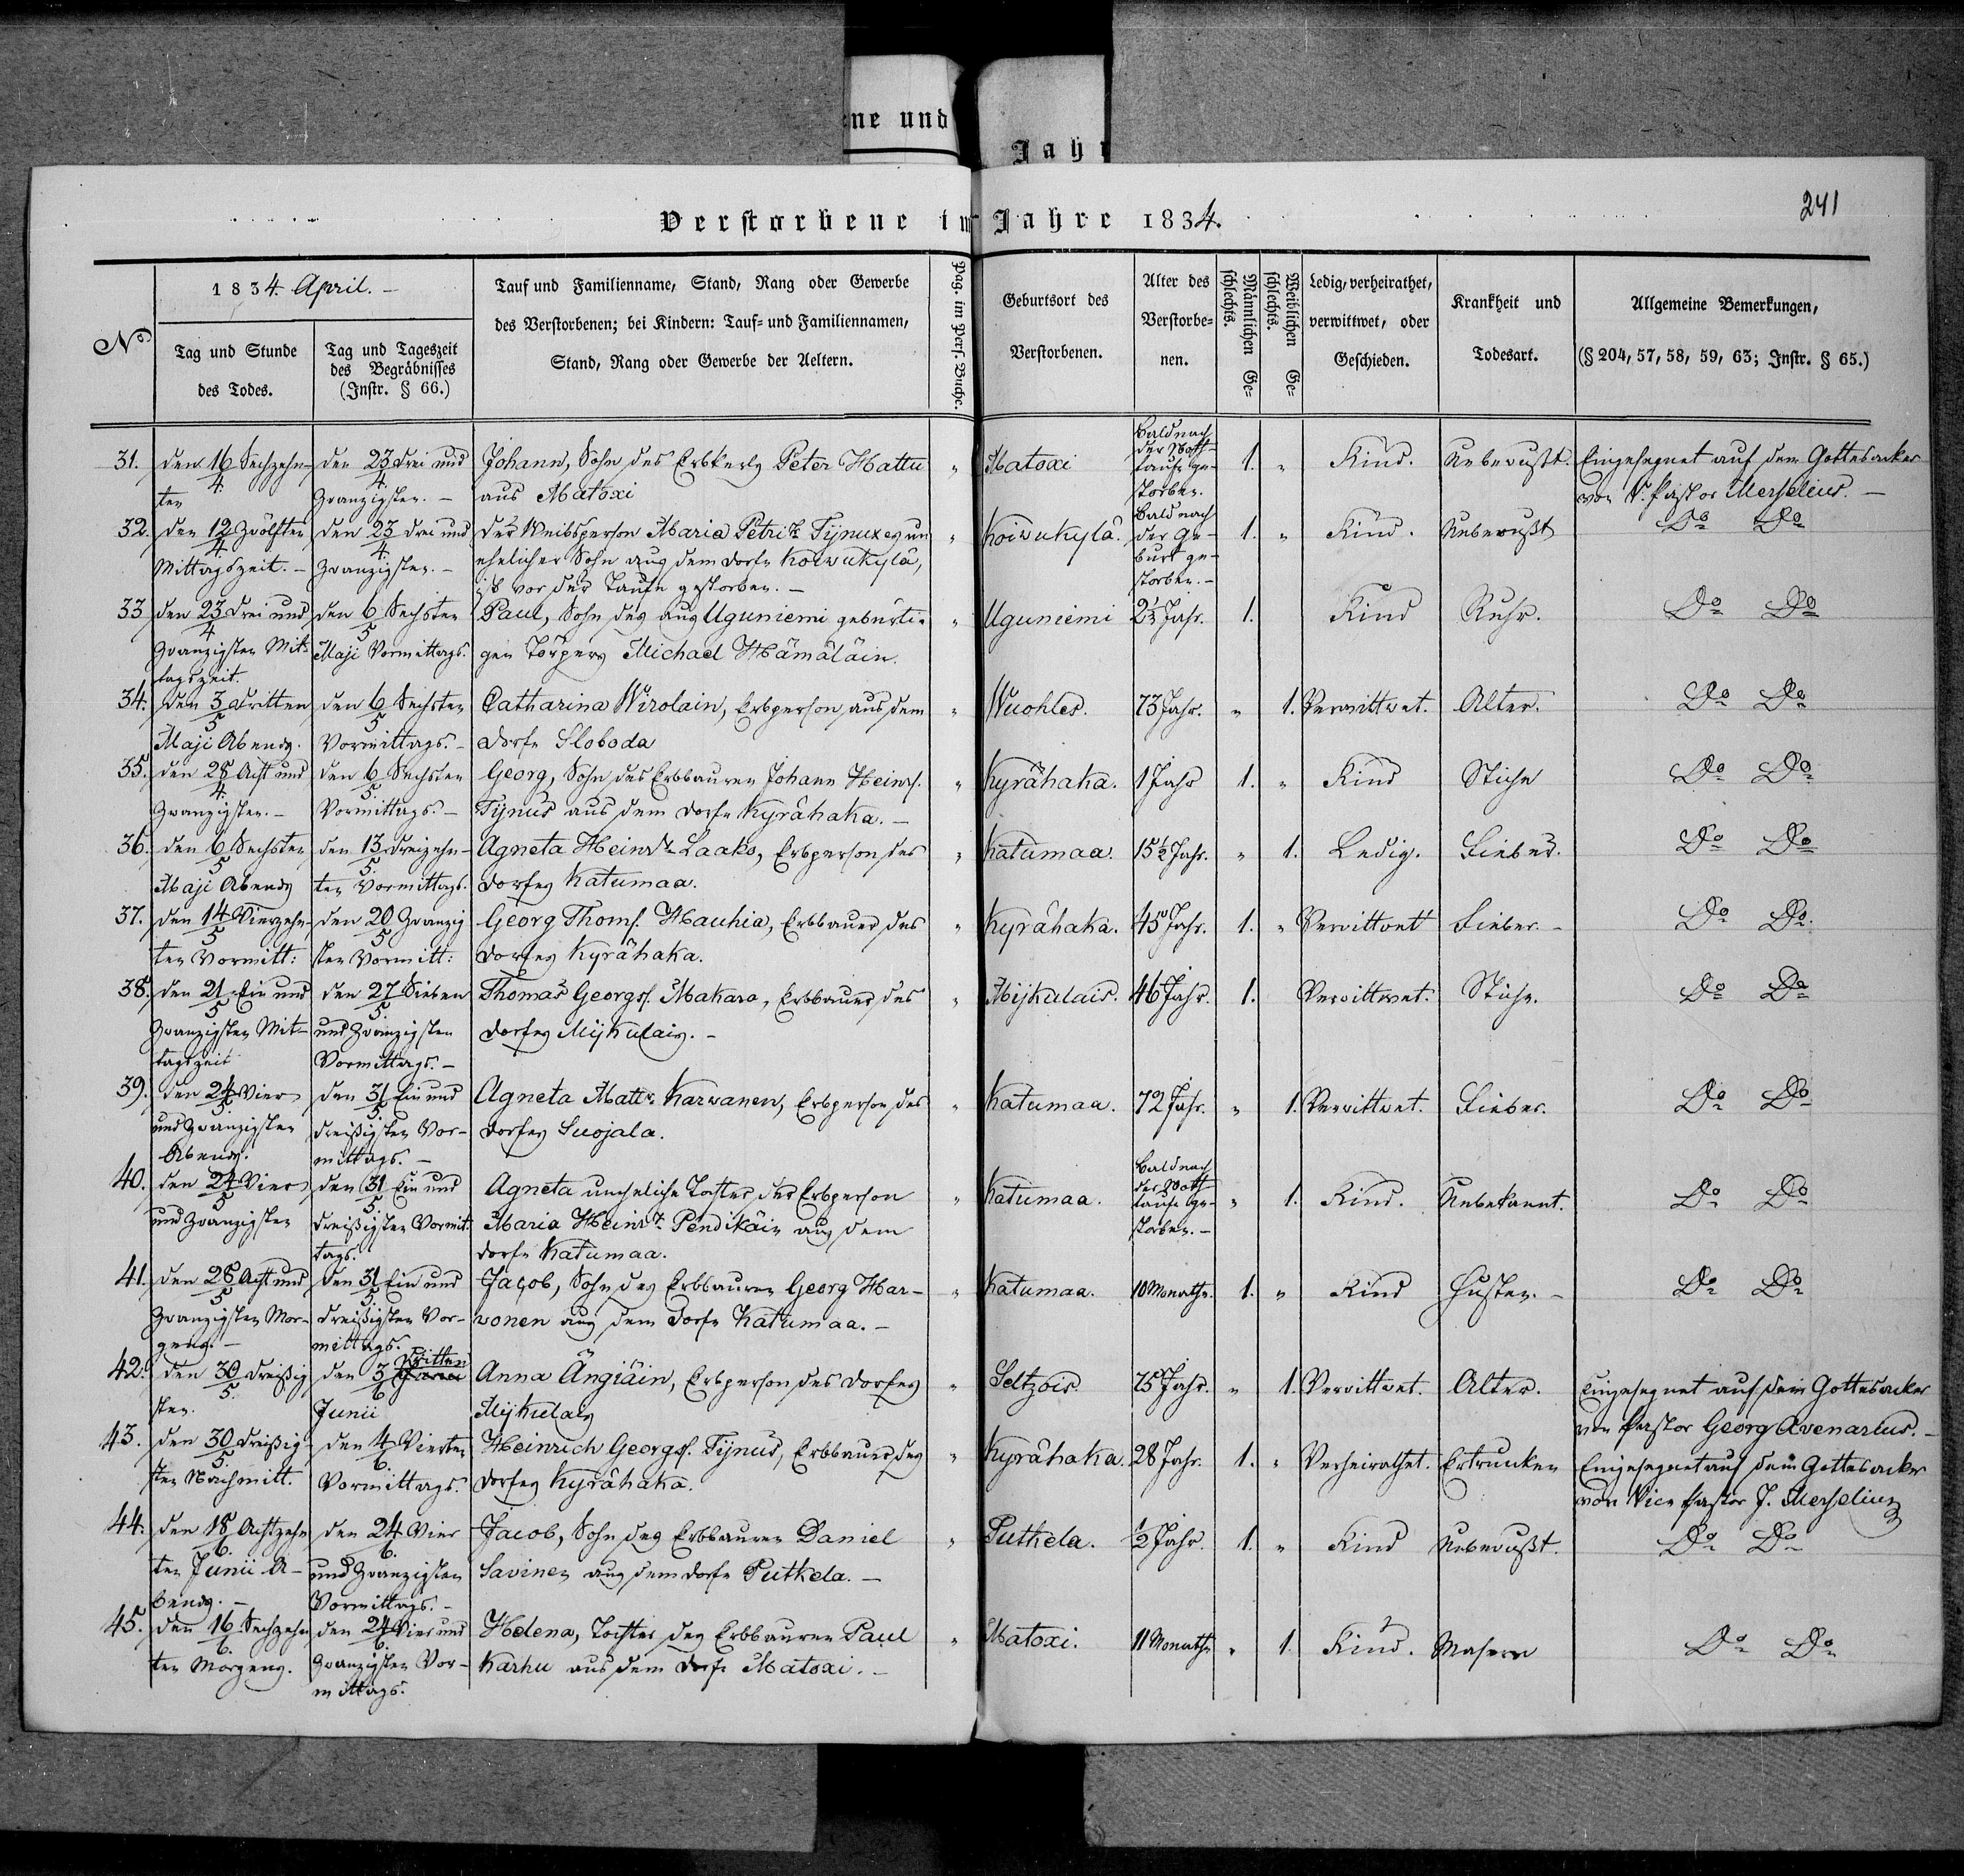 ene und
Jahr
241
Verstorbene im Jahre 1834.
No
1834. April. –
Tag und Stunde des Todes.
Tag und Tageszeit des Begräbnisses (Instr. § 66.)
Tauf und Familienname, Stand, Rang oder Gewerbe
des Verstorbenen; bei Kindern: Tauf- und Familiennamen,
Stand, Rang oder Gewerbe der Aeltern.
Pag. im Pers. Buche.
Geburtsort des Verstorbenen.
Alter des Verstorbe-nen.
Männlichen Ge-schlechts.
Weiblichen Ge-schlechts.
Ledig, verheirathet, verwittwet, oder Geschieden.
Krankheit und Todesart.
Allgemeine Bemerkungen,
(§ 204, 57, 58, 59, 63; Instr. § 65.)
31. den 16/4. Sechzehn- den 23/4. drei und Johann, Sohn des Erbkerls Peter Hattu " Matoxi Bald nach der Noth-taufe ge-storben. 1. " Kind. Unbewußt. Eingesegnet auf dem Gottesacker
ten Zwanzigsten. – aus Matoxi von V. Pastor Merselius. –
32. den 12/4. Zwölften den 23/4. drei und der Weibsperson Maria Petri Tr. Tijnux un " Koiwukylä. Bald nach der Ge-burt ge-storben. – 1. " Kind. Unbewußt Do Do
Mittagszeit. – Zwanzigsten. – ehelicher Sohn aus dem Dorfe Koiwukylä,
ist vor der Taufe gestorben. –
33 den 23/4 drei und den 6/5 Sechsten Paul, Sohn des aus Uguniemi gebürti- " Uguniemi 2½ Jahr. 1. Kind Ruhr. Do Do
Zwanzigsten Mit- Maji Vormittags. gen Törpers Michael Hämäläin.
tagszeit.
34. den 3/5 dritten den 6/5 Sechsten Catharina Wirolain, Erbperson aus dem " Wuohles. 73 Jahr. " 1. Verwittwet. Alter. Do Do
Maji Abends. Vormittags. – Dorfe Sloboda
35. den 28/4. Acht und den 6/5. Sechsten Georg, Sohn des Erbbauren Johann Heinrs. " Kyrähaka. 1 Jahr 1. " Kind Stiche Do Do
Zwanzigsten. – Vormittags. – Tijnus aus dem Dorfe Kyrähaka. –
36. den 6/5 Sechsten den 13/5. dreizehn- Agneta Heinr. Tr. Laaks, Erbperson des " Katumaa. 15½ Jahr. " 1. Ledig. Fieber. Do Do
Maji Abends ten Vormittags. Dorfes Katumaa.
37. den 14/5 Vierzehn- den 20/5 Zwanzig Georg Thoms. Hauhia, Erbbauer des " Kyrähaka. 45 Jahr. 1. " Verwittwet Fieber. – Do Do.
ten Vormitt: sten Vormitt: Dorfes Kyrähaka.
38. den 21/5 Ein und den 27/5. Sieben Thomas Georgss. Makara, Erbbauer des " Mijkulais. 46 Jahr. 1. Verwittwet. Stiche. Do Do
Zwanzigsten Mit- und Zwanzigsten Dorfes Mijkulais. –
tagszeit Vormittags. –
39. den 24/5 Vier den 31/5 Ein und Agneta Matts Karwanen, Erbperson des " Katumaa. 72 Jahr. " 1. Verwittwet. Fieber. Do Do
und Zwanzigsten dreißigsten Vor- Dorfes Suojala.
Abends. mittags. –
40. den 24/5 Vier den 31/5. Ein und Agneta uneheliche Tochter der Erbperson " Katumaa. Bald nach der Noth taufe ge-storben. – " 1. Kind. Unbekannt. Do Do
und Zwanzigsten dreißigsten Vormit- Maria Heinr. Tr. Pendikäin aus dem
tags. Dorfe Katumaa.
41. den 28/5 Acht und den 31/5 Ein und Jacob, Sohn des Erbbauren Georg Har- " Katumaa. 10 Monathe. 1. " Kind Husten. – Do Do
Zwanzigsten Mor- dreißigsten Vor- wonen aus dem Dorfe Katumaa. –
gens. – mittags.
42. den 30/5. dreißig den 3/6 dritten Anna Ängiäin, Erbperson des Dorfes " Seltzois. 75 Jahr. " 1. Verwittwet. Alter. Eingesegnet auf dem Gottesacker
sten. Junii Mijkulais von Pastor Georg Avenarius. –
43. den 30/5. dreißig- den 4/6. Vierten Heinrich Georgss. Tijnus, Erbbauer des " Kyrähaka. 28 Jahr. 1. " Verheirathet. Ertrunken Eingesegnet auf dem Gottesacker
sten Nachmitt. Vormittags. Dorfes Kyrähaka. von Vice Pastor J. Merselius
44. den 18/6. Achtzehn den 24/6. Vier Jacob, Sohn des Erbbauren Daniel " Putkela. ½ Jahr. 1. " Kind Unbewußt. Do Do
ten Junii A- und Zwanzigsten Savinen aus dem Dorfe Putkela. –
bends. – Vormittags. –
45. den 16/6. Sechzehn den 24/6. Vier und Helena, Tochter des Erbbauren Paul " Matoxi. 11 Monathe " 1. Kind. Masern Do Do
ten Morgens. Zwanzigsten Vor- Karhu aus dem Dorfe Matoxi. –
mittags.